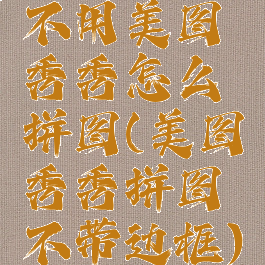 不用美图
秀秀怎么
拼图(美图
秀秀拼图
不带边框)